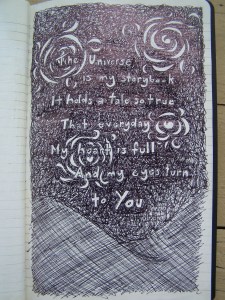 The Universe
is my storybook
It holds a tale so true
That everyday
My heart is full
And my eyes turn
to You